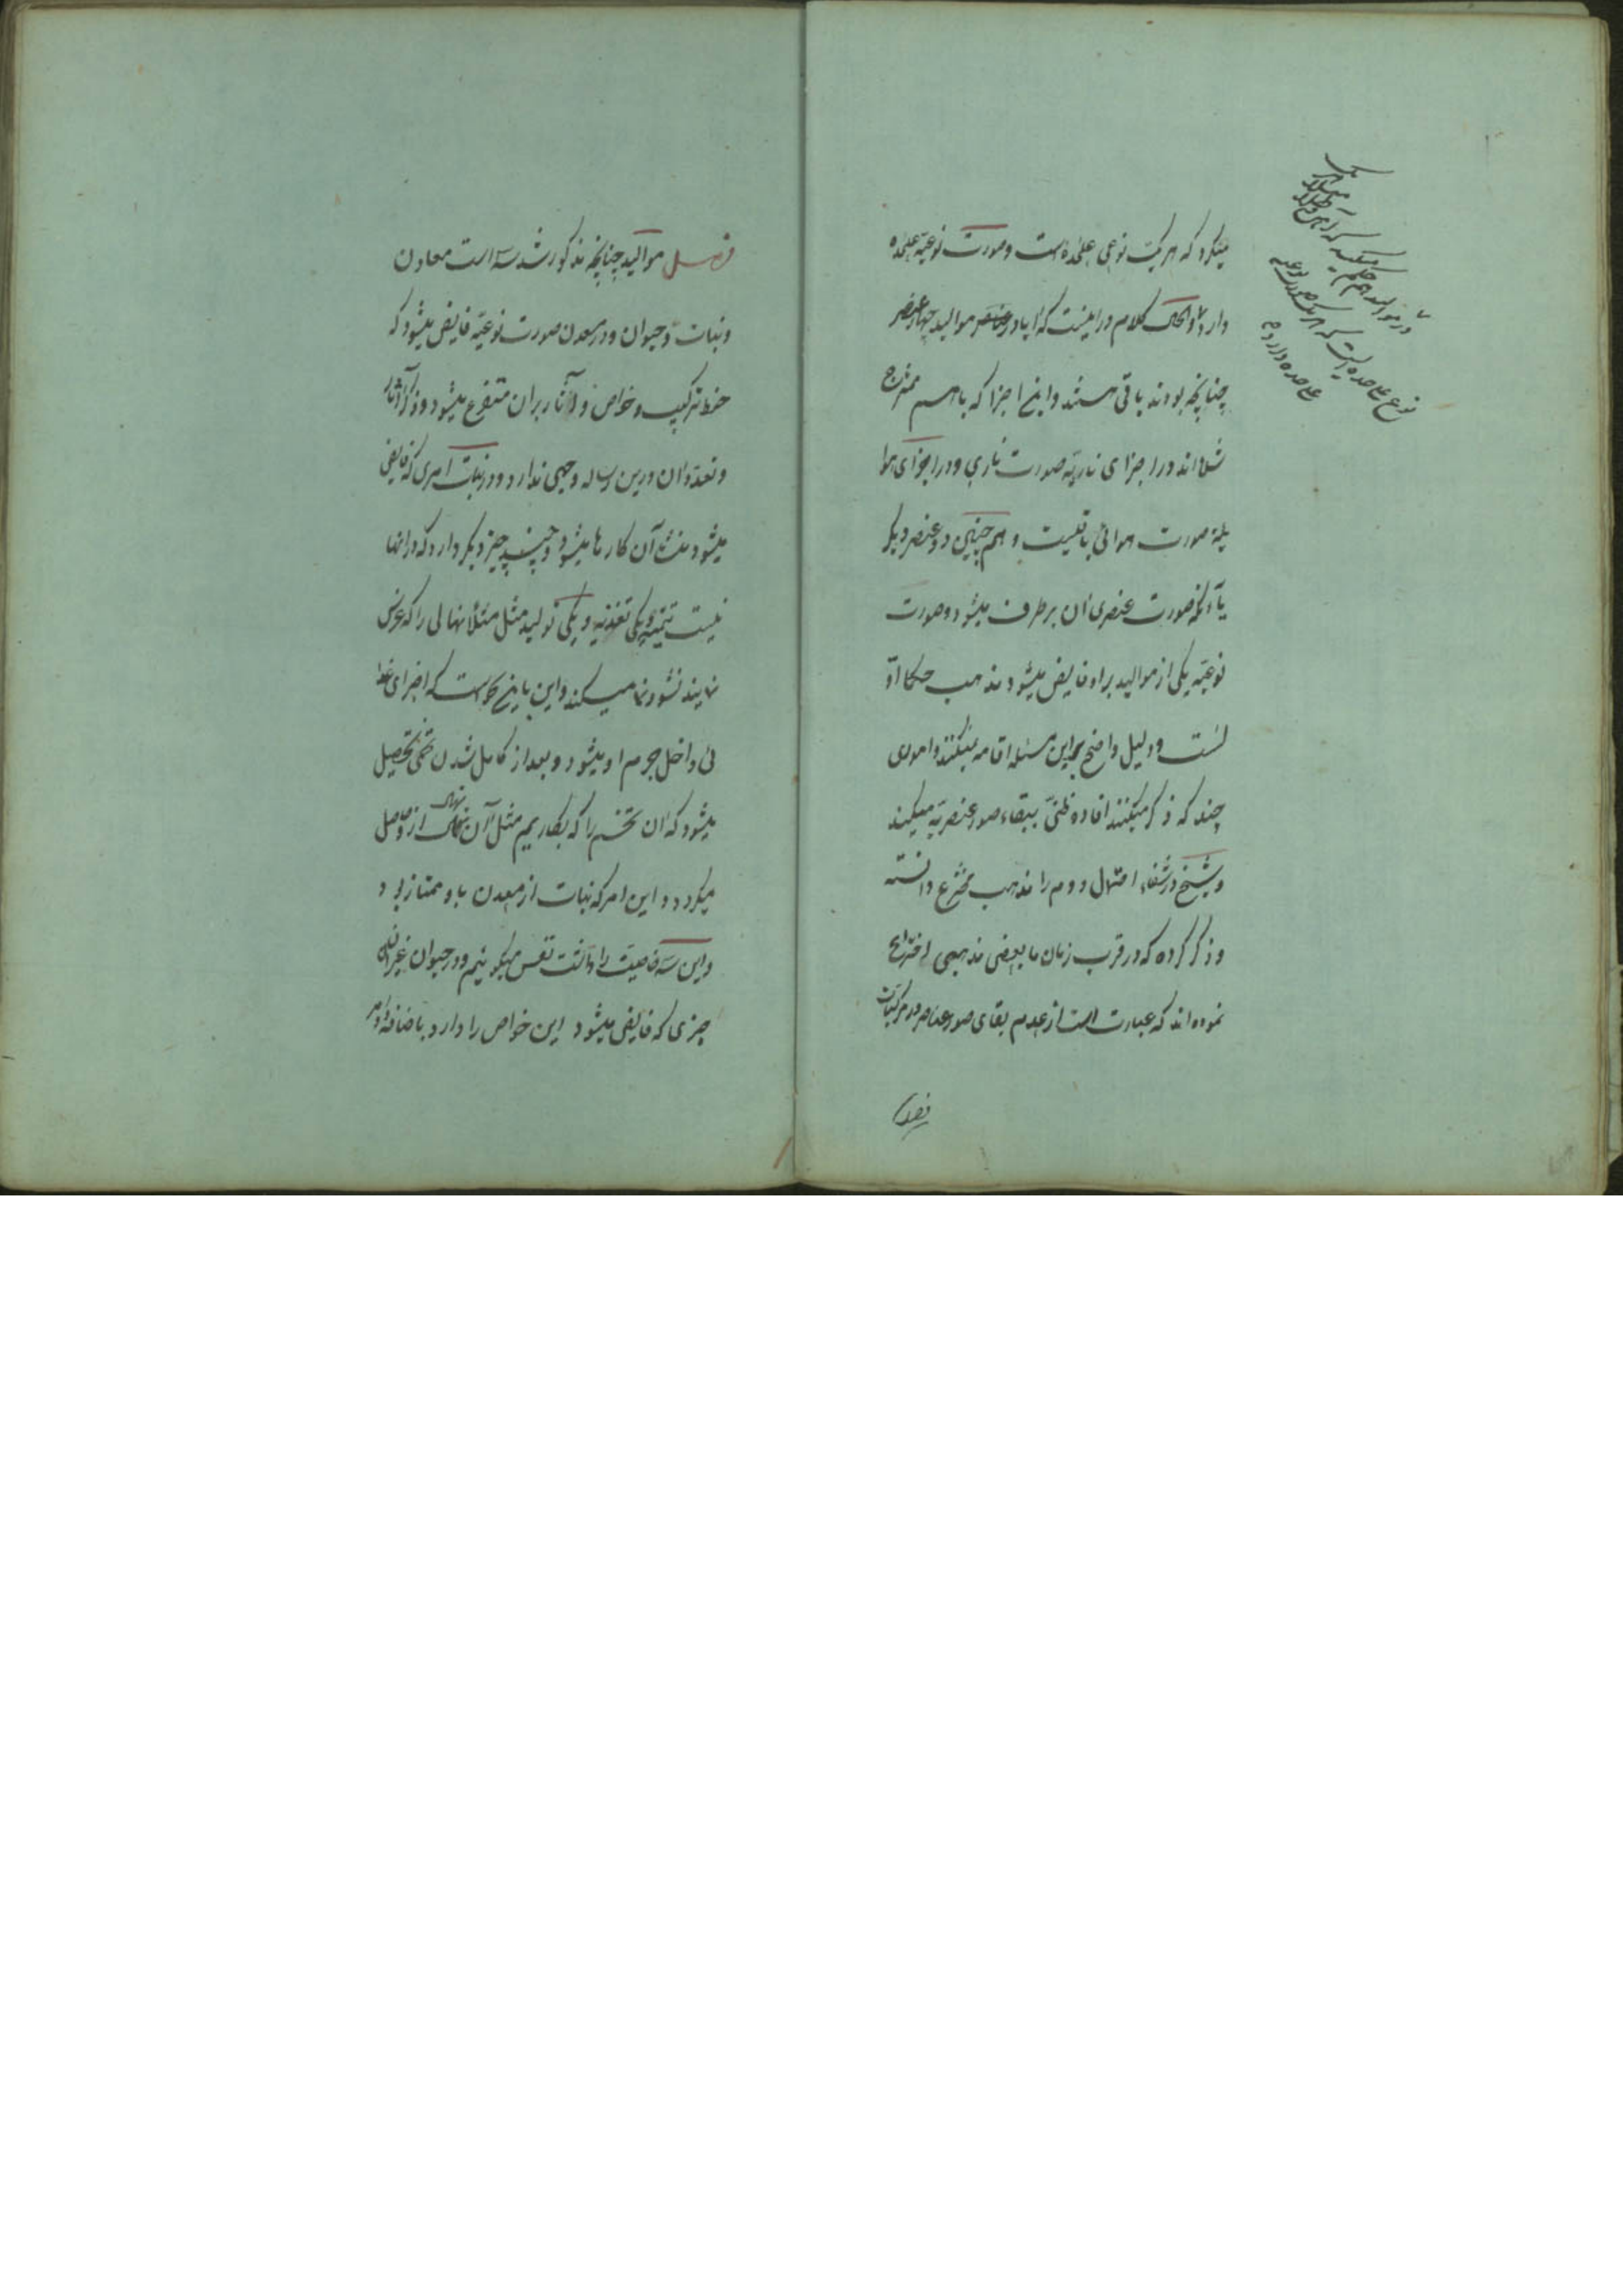 میگرد که هر یک نوعی علیحده است و صورت نوعیه علیحده
دارد و کلام در اینست که ایا در عناصر موالید چهار عنصر
چنانچه بودند باقی هستند و این اجزا که باهم ممتزج
شده‌اند در اجزای ناریه صورت ناری و در اجزای هوا
ئیه صورت هوائی باقیست و هم چنین دو عنصر دیگر
یا آنکه صورت عنصری آن برطرف میشود و صورت
نوعیه یکی از موالید براو فایض میشود مذهب حکما او
لست و دلیل واضح براین مسئله اقامه نمیکنند و اموری
چند که ذکر میکنند افاده ظنی ببقاء صور عنصریه میکند
و شیخ در شفاء احتمال دوم را مذهب مخترع دانسته
و ذکر کرده که در قرب زمان ما بعضی مذهبی اختراع
نموده‌اند که عبارت است از عدم بقای صور عناصر در مرکبات
در موالید هم حکم میکنیم که
نوع علاحده ایست که هر یک صورت نوعیه
علاحده دارد
فصل
فصل موالید چنانچه مذکور شد سه است معادن
و نبات و حیوان و در معدن صورت نوعیه فایض میشود که
حفظ ترکیب و خواص و آثار بران متفرع میشود و ذکر آثار
و تعداد ان درین رساله وجهی ندارد و در نبات امری که فایض
میشود منشأ آن کارها میشود و چند چیز دیگر دارد که در انها
نیست تنمیه و یکی تغذیه و یکی تولید مثل مثلا نهالی را که غرس
نمایند نشو و نما میکند و این باین جهت است که اجزای غذا
ئی داخل جرم او میشود و بعد از کامل شدن تخمی تحصیل
میشود که ان تخم را که بکاریم مثل آن نهالی ازو حاصل
میگردد و این امر که نبات از معدن باو ممتاز بود
و این سه خاصیت را دانت نفس میگوئیم و در حیوان غیر انسان
چیزی که فایض میشود این خواص را دارد باضافه دو امر